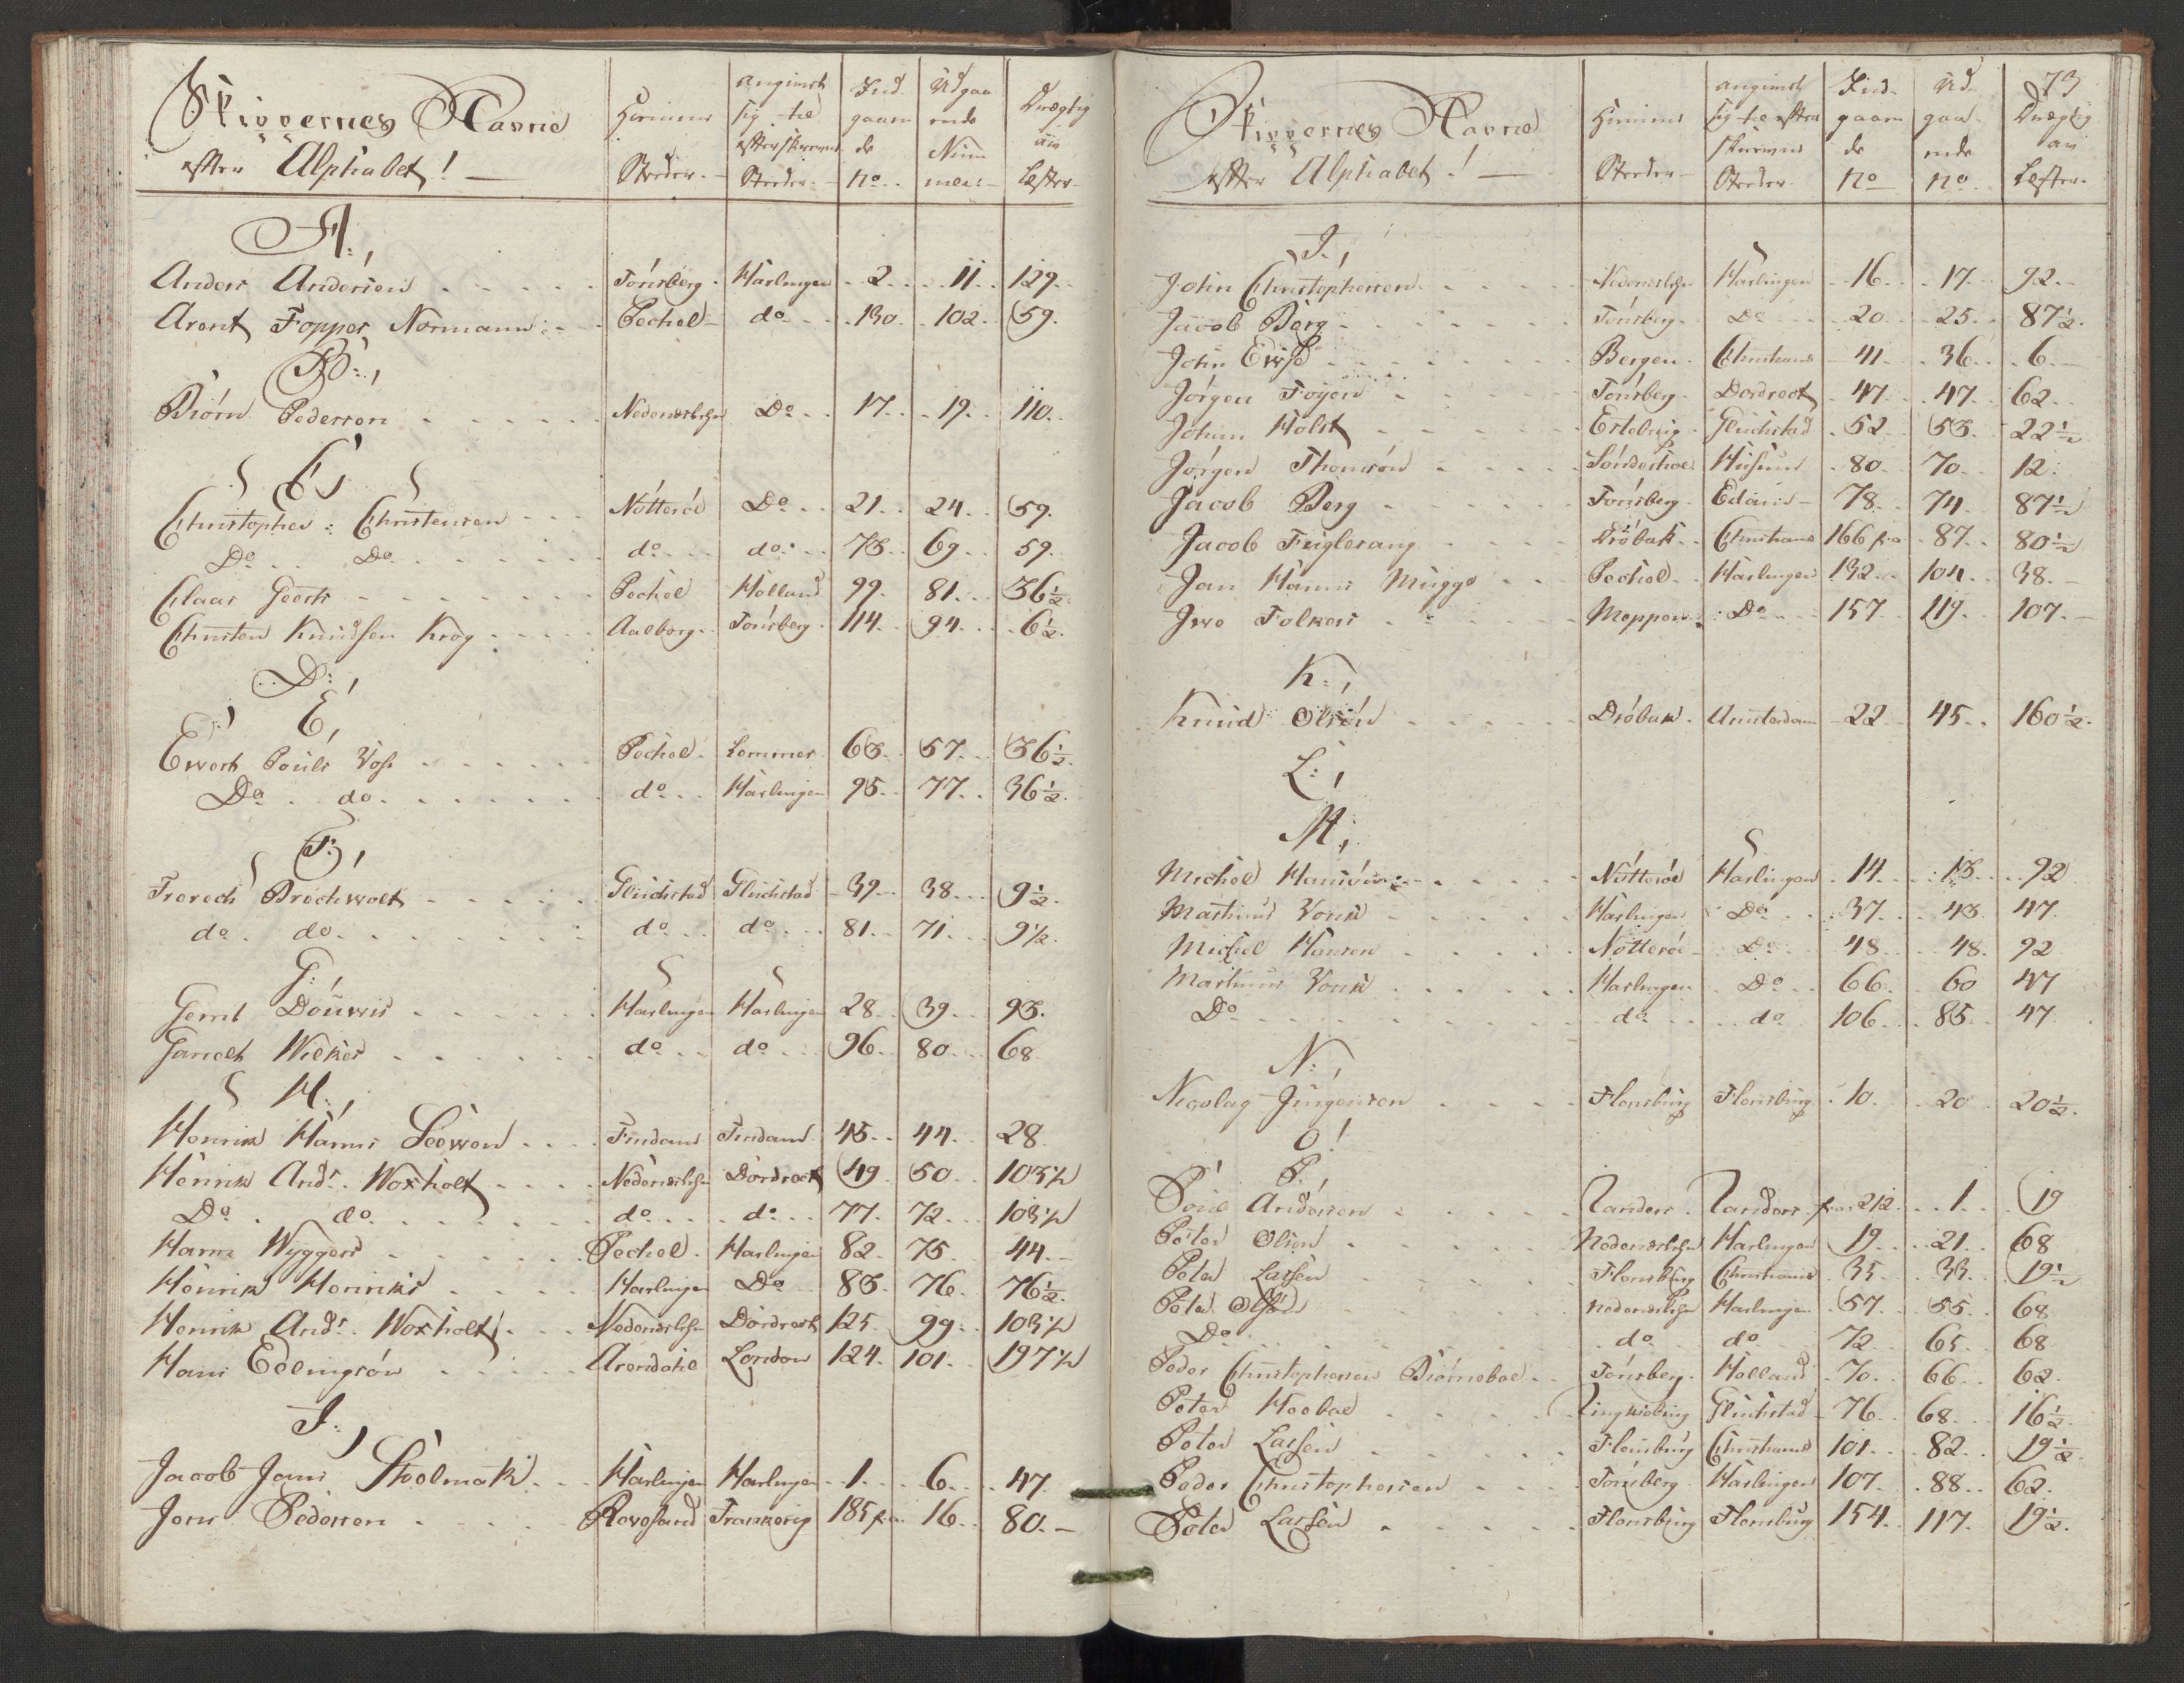 Skippernes Navne
efter Alphabet!
Hiemme Steder
angivet sig til efterskrevne Steder
Indgaaende No.
Udgaaende Numer
Drægtig an Læster
A.
Anders Andersen Tönsberg Harlingen 2 11 129
Arent Foppes Normann Pechel do 130 102 59.
B.
Biörn Pedersen Nedenæslehn Do 17 19 110
C.
Christopher Christensen Nötteröe Do 21 24 59.
Do Do do do 73 69 59
Claas Geerts Pechel Holland 99 81 36½
Christen Knudsen Krog Aalborg Tönsberg 114 94 6½
D.
E.
Ewert Pouls Vos Pechel Lemmer 63 57 36½
Do do do Harlingen 95 77 36½
F.
Frerech Brochwolt Gluchstad Gluchstad 39 38 9½
do do do do 81 71 9½
G.
Gerrit Douwis Harlingen Harlingen 28 39 93.
Harlingen do do 96 80 68
H.
Henrik Harms Leewen 45 44 28
Henrik Andr. Woxholt Nedenæslehn Dordrecht 49 50 103½
Do do do do 77 72 103½
Harm Wiggers Pechel Harlingen 82 75 44
Henrik Henriks Harlingen Do 83 76 76½
Henrik Andr. Woxholt Nedenæslehn Dordrecht 125 99 103½
Hans Edlingsön Arendahl London 124 101 197½
I.
Jacob Jans Stoelmak Harlingen Harlingen 1 6 47
Jens Pedersen 185 f.a. 16 80
73
Skippernes Navne
efter Alphabet!
Hiemme Steder
angivet sig til efterskrevne Steder
Indgaaende No
Udgaaende No
Drægtig an Læster
I.
John Christophersen Nedenæslehn Harlingen 16 17 92
Jacob Berg Tönsberg Do 20 25 87½
John Bergen 41 36 6
Jörgen Föyen Tönsberg Dordrect 47 47 62
Johan Holst Gluchstad 52 53 22½
Jörgen Thomsön Sönderhoe Husum 80 70 12
Jacob Berg Tönsberg Edam 78 74 87½
Jacob Fuglesang Dröbak 166 f.a 87 80½
Jan Harms Mugge Pechel Harlingen 132 104 38
Iwe Folkers Meppen Do 157 119 107
K.
Knud Olsen Dröbak Amsterdam 22 45 160½
L.
M.
Michel Hansön Nötteröe Harlingen 14 13 92
Martinus Vonk Harlingen Do 37 43 47
Michel Hansen Nötteröe Do 48 48 92
Martinus Vonk Harlingen Do 66 60 47
Do do do 106 85 47
N.
Nicolay Jürgensen Flensburg Flensburg 10 20 20½
O!
P.
Poul Andersen Randers Randers f.a. 212 1 19
Peter Olsen Nedenæslehn Harlingen 19 21 68
Peter Larsen Flensburg Christiania 35 33 19½
Peter Olsen Nedenæslehn Harlingen 57 55 68
Do do do 72 65 68
Peder Christophersen Biörneboe Tönsberg Holland 70 66 62
Peter Hoebae Ringkiöbing Gluchstad 76 68 16½
Peter Larsen Flensburg 101 82 19½
Peder Christophersen Tönsberg Harlingen 107 88 62
Peter Larsen Flensburg Flensburg 154 117 19½